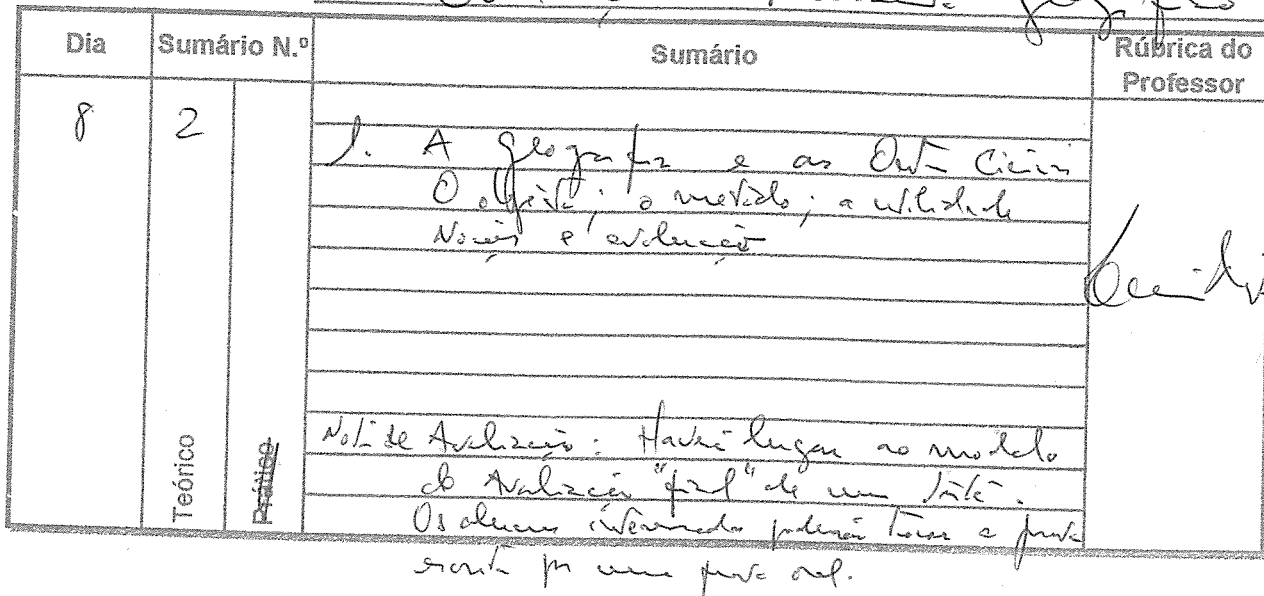 Dia Sumário N.º Sumário Rúbrica do Professor
8 2
1. A geografia e as Outras Ciências
O objecto; o método; a utilidade
Noções e evolução
Teórico Prático
Nota de Avaliação: Haverá lugar ao modelo
de Avaliação "final" de um
Os alunos interessados poderão trocar a prova
escrita por uma prova oral.